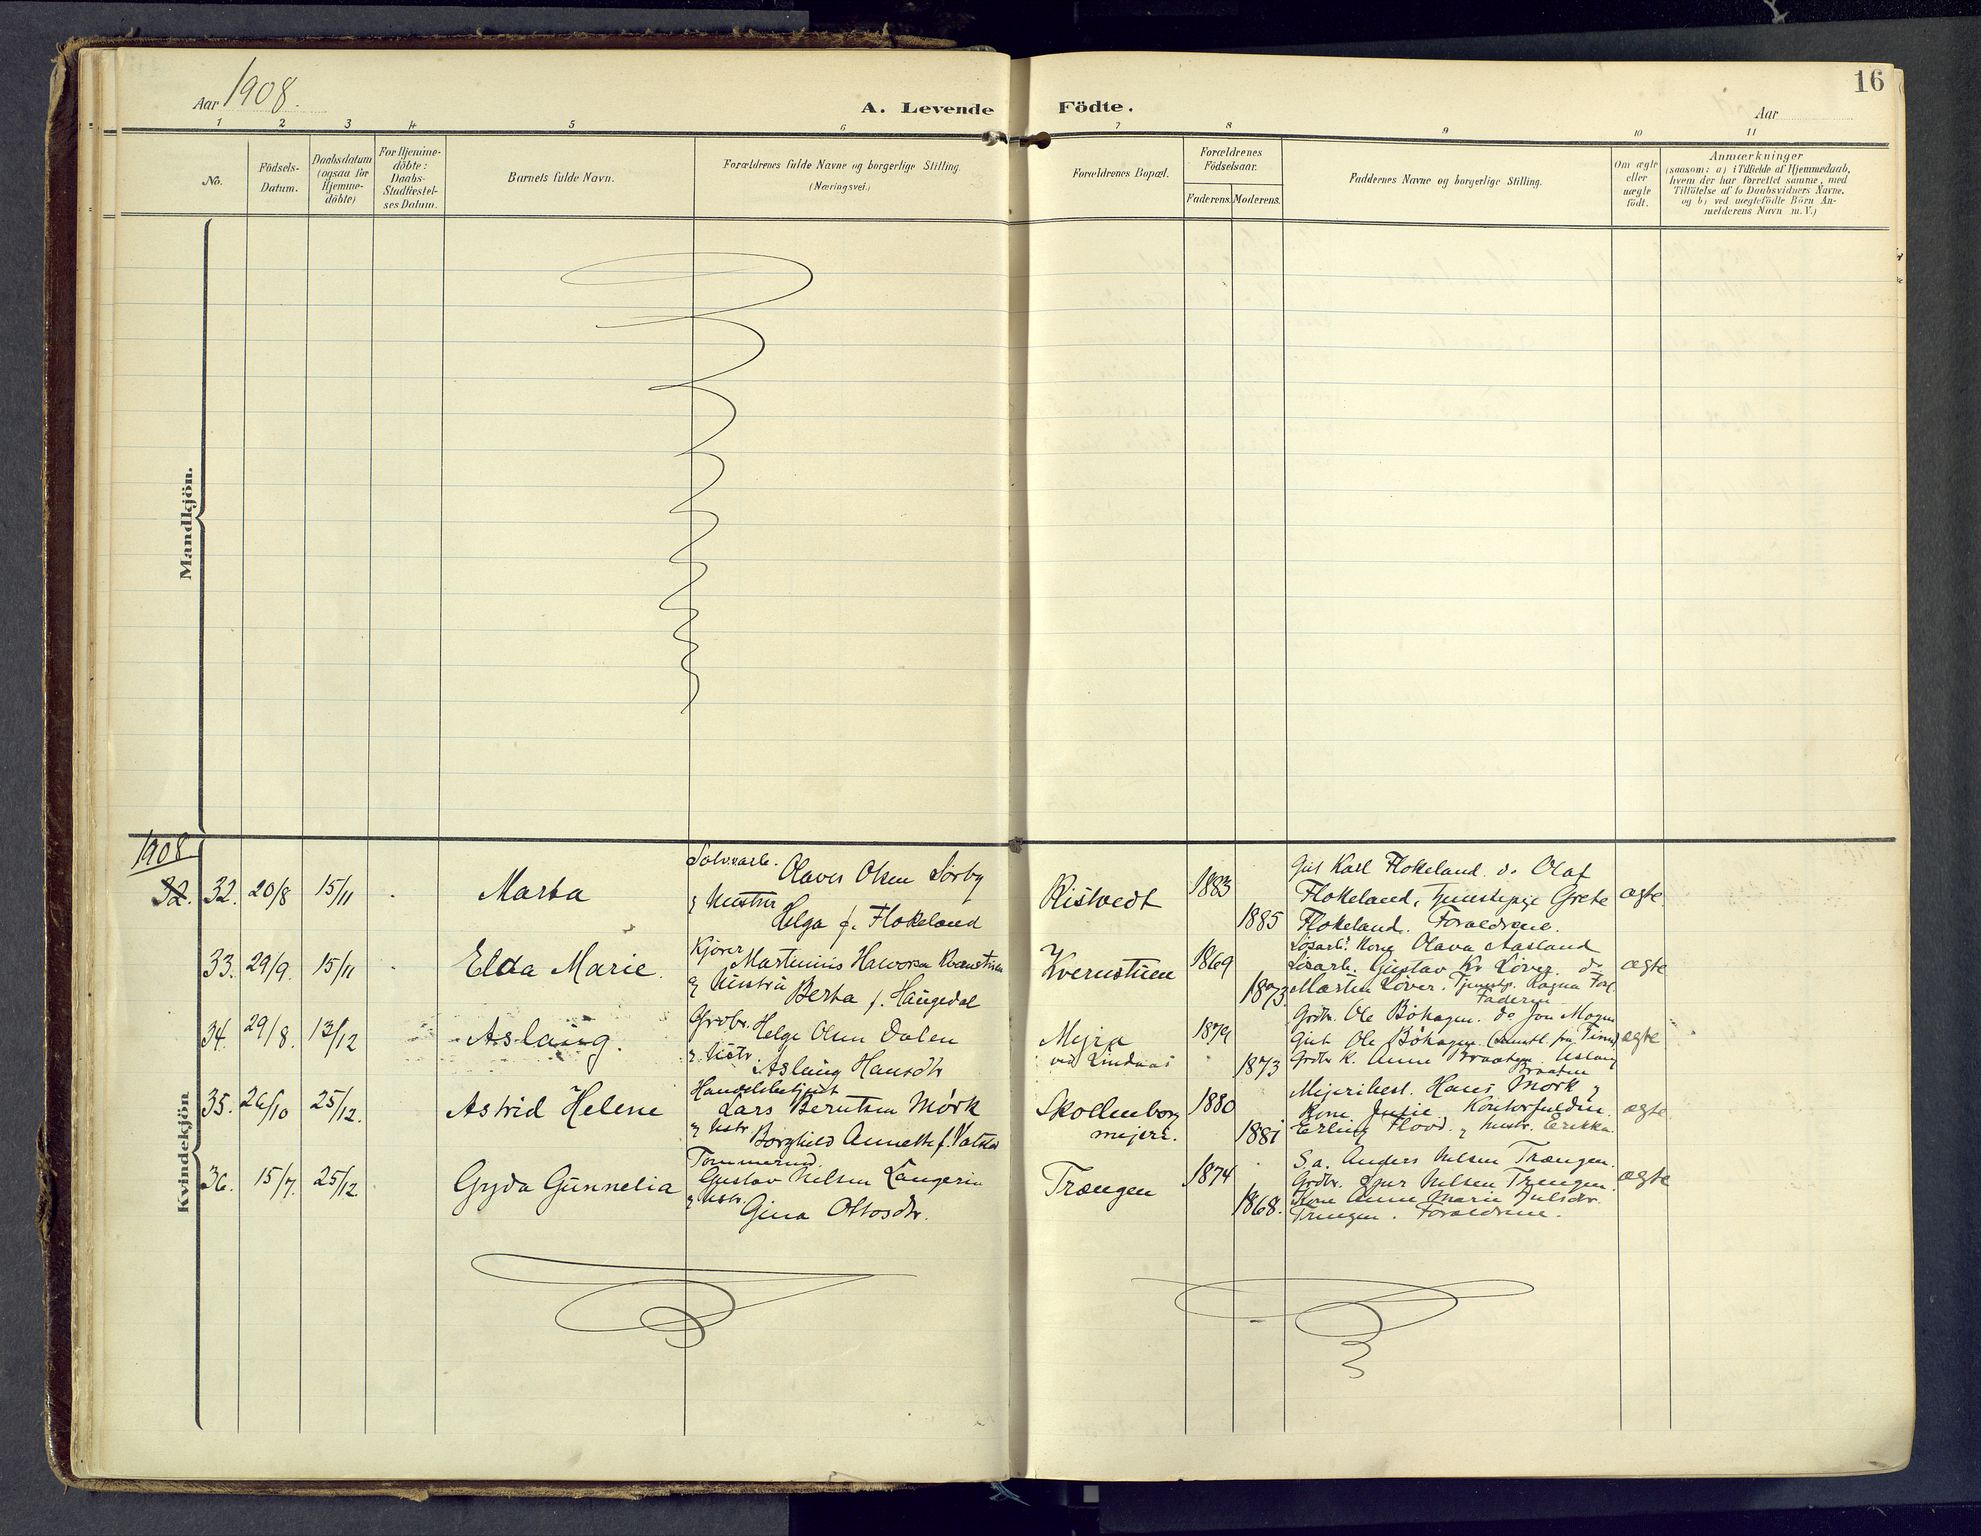 16
Aar 1908.
A. Levende Födte.
Aar
1 2 3 4 5 6 7 8 9 10 11
No.
Födsels-
Datum.
Daabsdatum
(ogsaa for
Hjemme-
döbte)
For Hjemme-
döbte:
Daabs-
Stadfæstel-
ses Datum.
Barnets fulde Navn.
Forældrenes fulde Navne og borgerlige Stilling.
(Næringsvei.)
Forældrenes Bopæl.
Forældrenes
Födselsaar.
Faderens. Moderens.
Faddernes Navne og borgerlige Stilling.
Om ægte
eller
uægte
födt.
Anmærkninger
(saasom: a) i Tilfælde af Hjemmedaab,
hvem der har forrettet samme, med
Tilföielse af to Daabsvidners Navne,
og b) ved uægtefödte Börn An-
melderens Navn m. V.)
Mandkjön.
Kvindekjön
1908
32. 32. 20/8 15/11 Marta
Sølvarb. Olaves Olsen Sörby
og Hustru
Helga f. Flokeland
Ristvedt 1883
1885
Gut Karl Flokeland. do Olaf
Flokeland, Tjenestepige Grete
Flokeland. Forældrene.
ægte
33. 29/9. 15/11 Elda Marie.
Kjører Martinius Halvorsen
og Hustru
Berta f. Haugedal
Kvernstuen 1869
1873
Løsarb. Kone Olava Aasland
Løsarb. Gustav Kr Løver. do
Martin Løver. Tjenestp. Ragna
Faderen
ægte
34. 29/8. 13/12 Aslaug.
Grdbr. Helge Olsen Dalen
og Hustr.
Aslaug Hansdtr
Mejra
ved Lindaas
1879
1873
Grdbr. Ole Böhagen. do Jon Mogen
Gut Ole Böhagen
Grdbr K. Anne Braaten. Aslaug
Braaten
ægte
35. 26/10 25/12. Astrid Helene
Handelsbetjent
Lars Berntsen Mörk
og Hustr. Borghild Annette f.
Skollenborg
mejeri.
1880
1881
Mejeribest. Hans Mörk og
Kone Julie. Kontorfuldm.
Erling Flood. og Hustr. Erikka.
ægte
36. 15/7. 25/12 Gyda Gunnelia
Tommermd.
Gustav Nilsen Langerud
og Hustr.
Gina Ottosdtr.
Trængen 1874
1868.
S.a. Anders Nilsen Trængen.
Grdbr. Nilsen Trængen.
Kone Anne Marie Julsdtr.
Trængen. Forældrene.
ægte